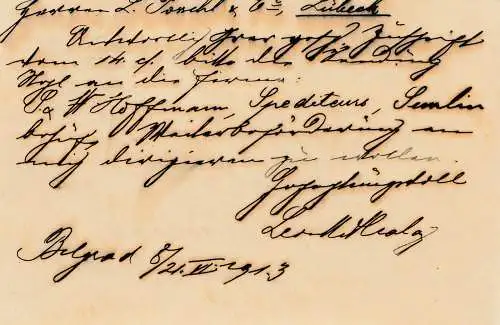 Herren L. Possehl & Co, Lübeck
Antwortlich Ihrer gesch. Zuschrift
vom 14 c. bitte die Sendung
an die Firma:
P. & W Hoffmann, Spediteurs, Semlin
behufs Weiterbeförderung an
mich dirigieren zu wollen.
Hochachtungsvoll
Belgrad 8/21.VI.1913